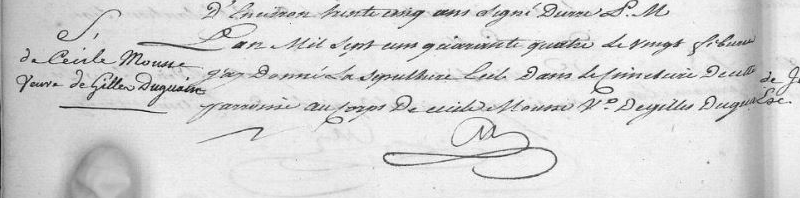 D'Environ trente cinq ans Signé Durre P. M
S,
de Cecile Mousse
Veuve de Gilles Duguain
L'an Mil Sept cent quarante quatre le vingt febvrier
j'ay Donné La Sepulture Eccle. dans le Cimetiere De cette
parroisse au Corps De cecile Mousse Ve. De gilles Duguain
de